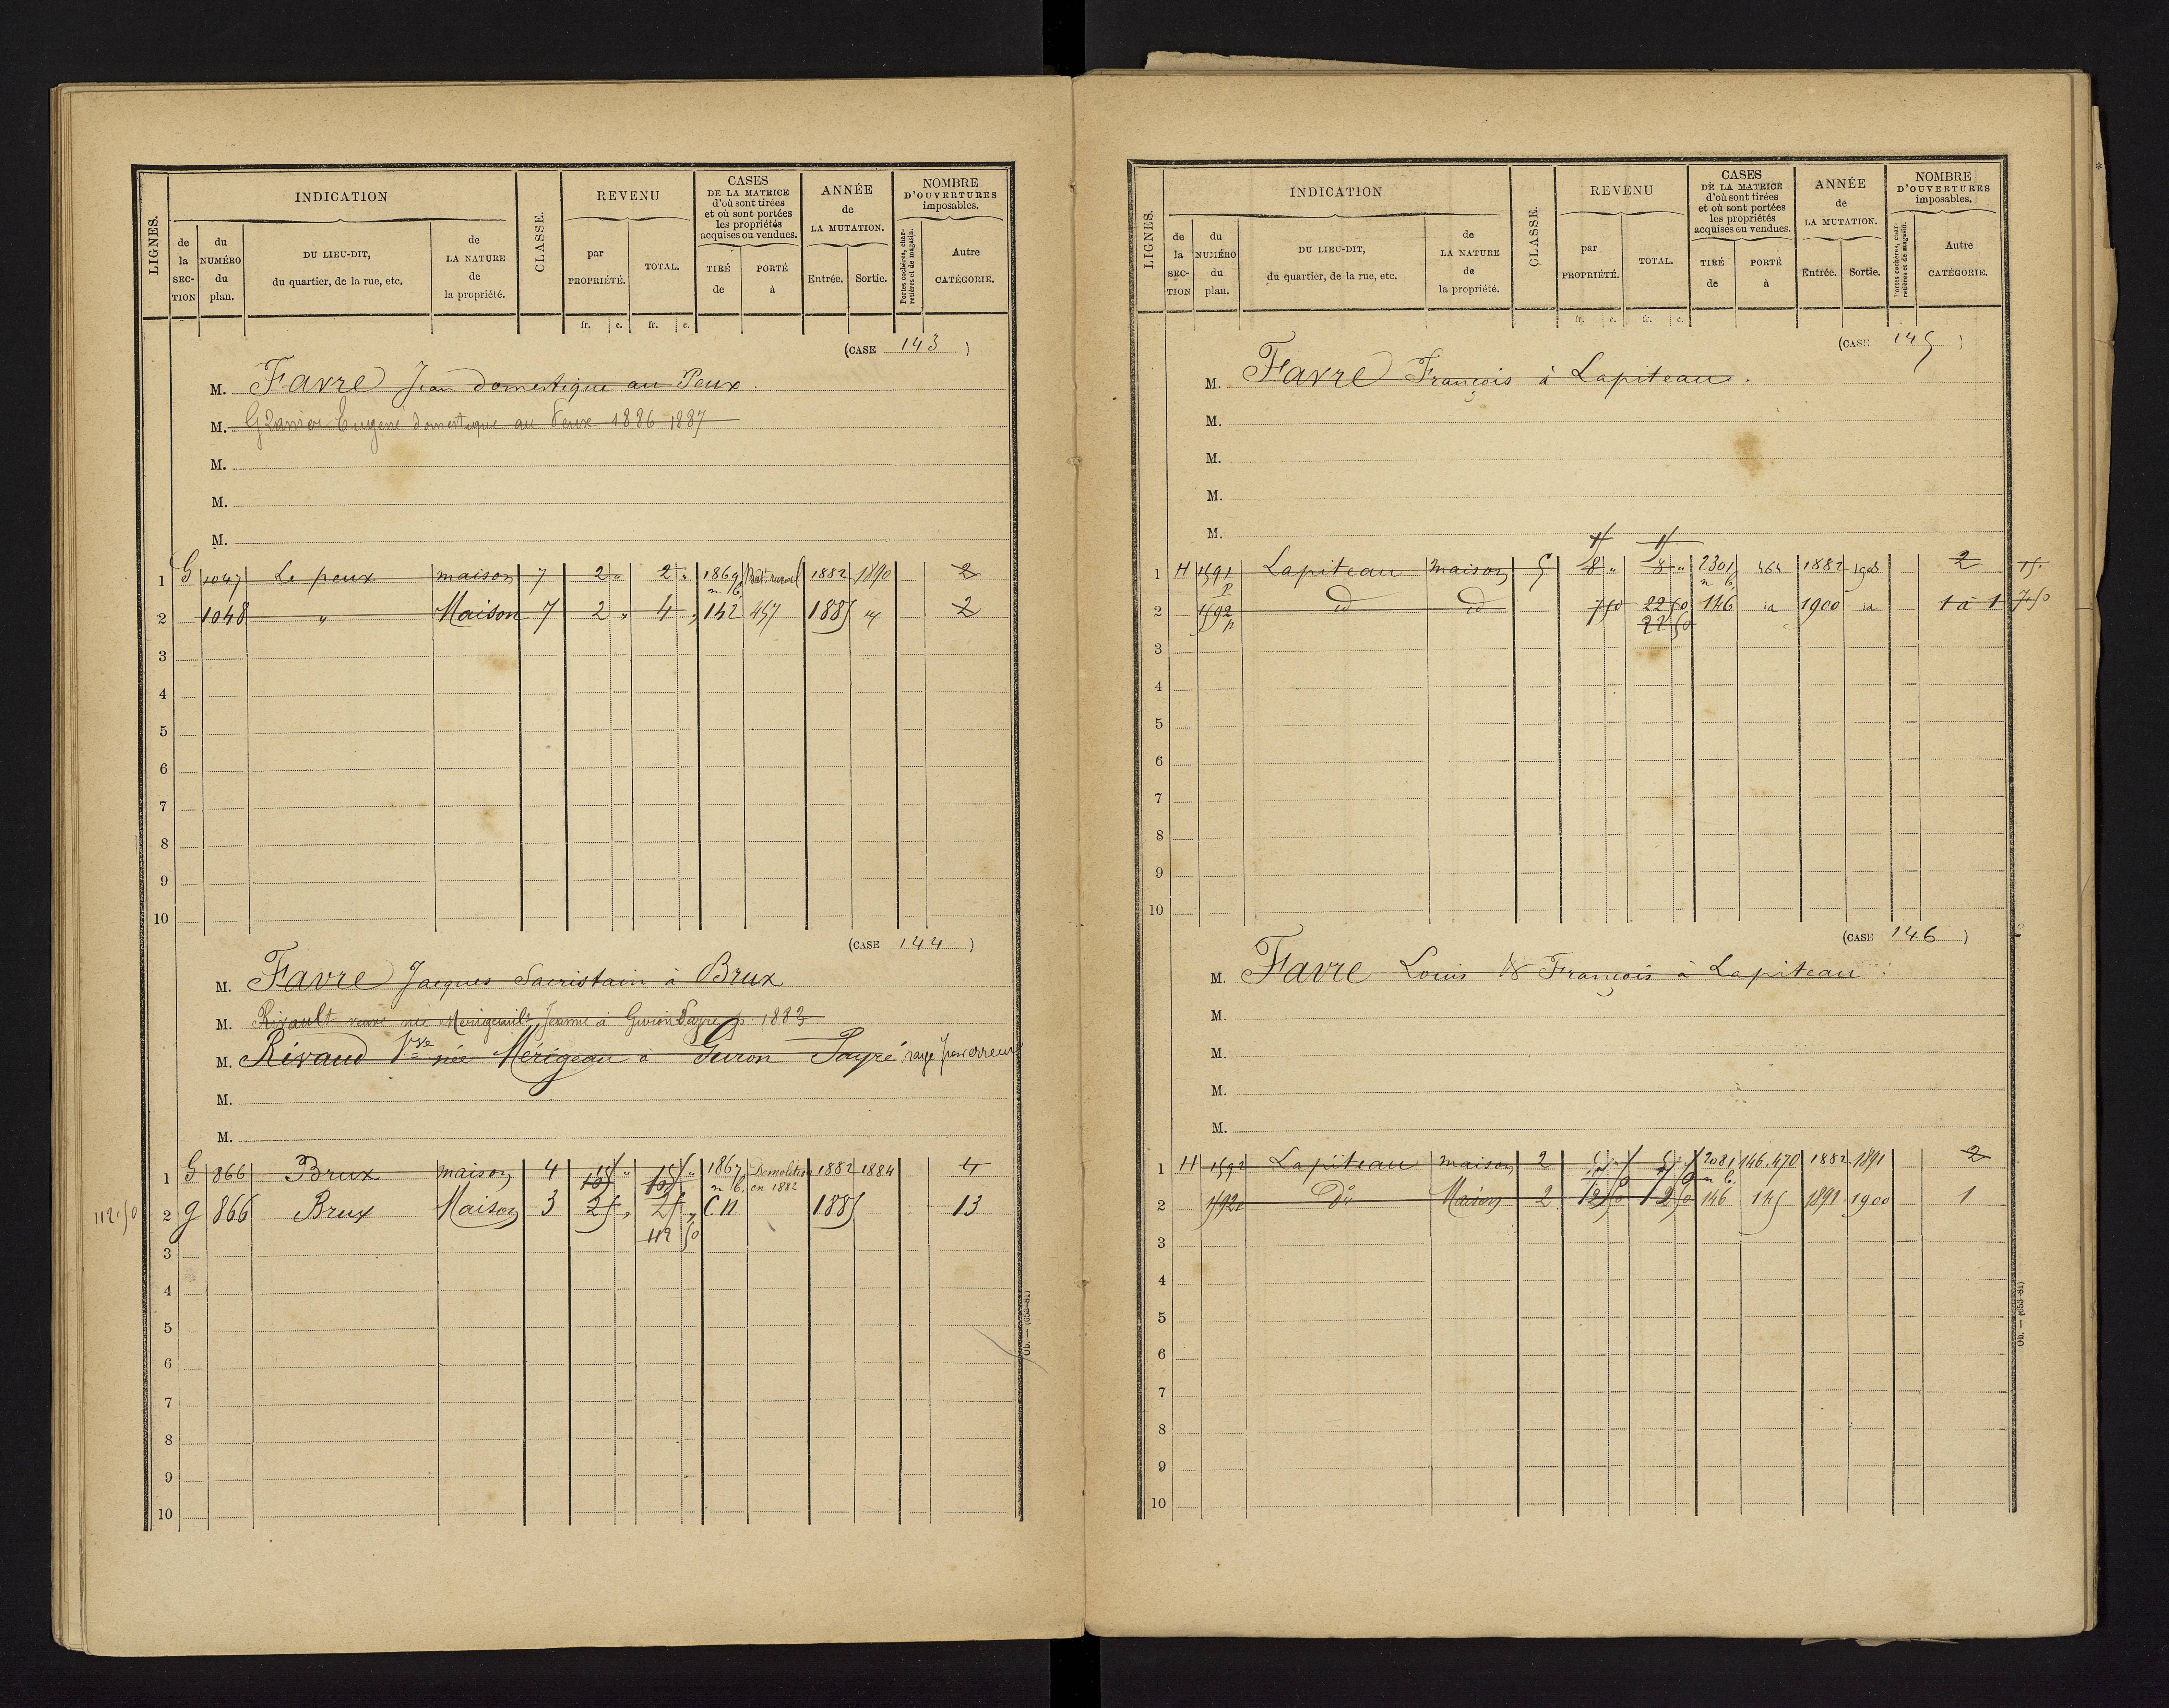 LIGNES.
INDICATION
CLASSE.
REVENU
CASES
DE LA MATRICE
d'où sont tirées
et où sont portées
les propriétés
acquises ou vendues.
ANNÉE
de
LA MUTATION.
NOMBRE
D'OUVERTURES
imposables.
de la SEC-TION
du NUMÉRO du plan.
DU LIEU-DIT,
du quartier, de la rue, etc.
de LA NATURE de la propriété.
par PROPRIÉTÉ.
TOTAL.
TIRÉ de
PORTÉ à
Entrée.
Sortie.
Portes cochères, charretières et de magasin.
Autre CATÉGORIE.
fr. c. fr. c.
(CASE 143)
M. Favre Jean domestique au Peux.
M. Eugène domestique au Peux 1886 1887
M.
M.
M.
1 G 1047 Le peux maison 7 2 " 2 " 1869 Bat. rural 1882 1890 2
2 1048 " Maison 7 2 " 4 " 142 457 1885 2
3
4
5
6
7
8
9
10
(CASE 144)
M. Favre Jacques Sacristain à Brux
M. Rivault veuve née Jeanne à 1883
M. Rivaud Vve née Mérigeau à Guron Payré rayé par erreur
M.
M.
1 G 866 Brux maison 4 15 " 15 " 1867 Démolition 1882 1884 4
n 6, en 1882
112.50 2 g 866 Brux Maison 3 25 " 25 " C 11 1885 13
112 50
3
4
5
6
7
8
9
10
Ob. — (653-81)
LIGNES.
INDICATION
CLASSE.
REVENU
CASES
DE LA MATRICE
d'où sont tirées
et où sont portées
les propriétés
acquises ou vendues.
ANNÉE
de
LA MUTATION.
NOMBRE
D'OUVERTURES
imposables.
de la SEC-TION
du NUMÉRO du plan.
DU LIEU-DIT,
du quartier, de la rue, etc.
de LA NATURE de la propriété.
par PROPRIÉTÉ.
TOTAL.
TIRÉ de
PORTÉ à
Entrée.
Sortie.
Portes cochères, charretières et de magasin.
Autre CATÉGORIE.
fr. c. fr. c.
(CASE 145)
M. Favre François à Lapiteau.
M.
M.
M.
M.
1 H 1591 p Lapiteau maison 5 8 " 8 " 2301 464 1882 2 15.
n 6,
2 1592 p id id 7 50 22 50 146 id 1900 id 1 à 1 7.50
22 50
3
4
5
6
7
8
9
10
(CASE 146)
M. Favre Louis & François à Lapiteau
M.
M.
M.
M.
1 H 1592 Lapiteau maison 2 2081 146.470 1882 1891 2
n 6.
2 1592 Dº Maison 2 12 50 12 50 146 145 1891 1900 1
3
4
5
6
7
8
9
10
Ob. — (653-81)